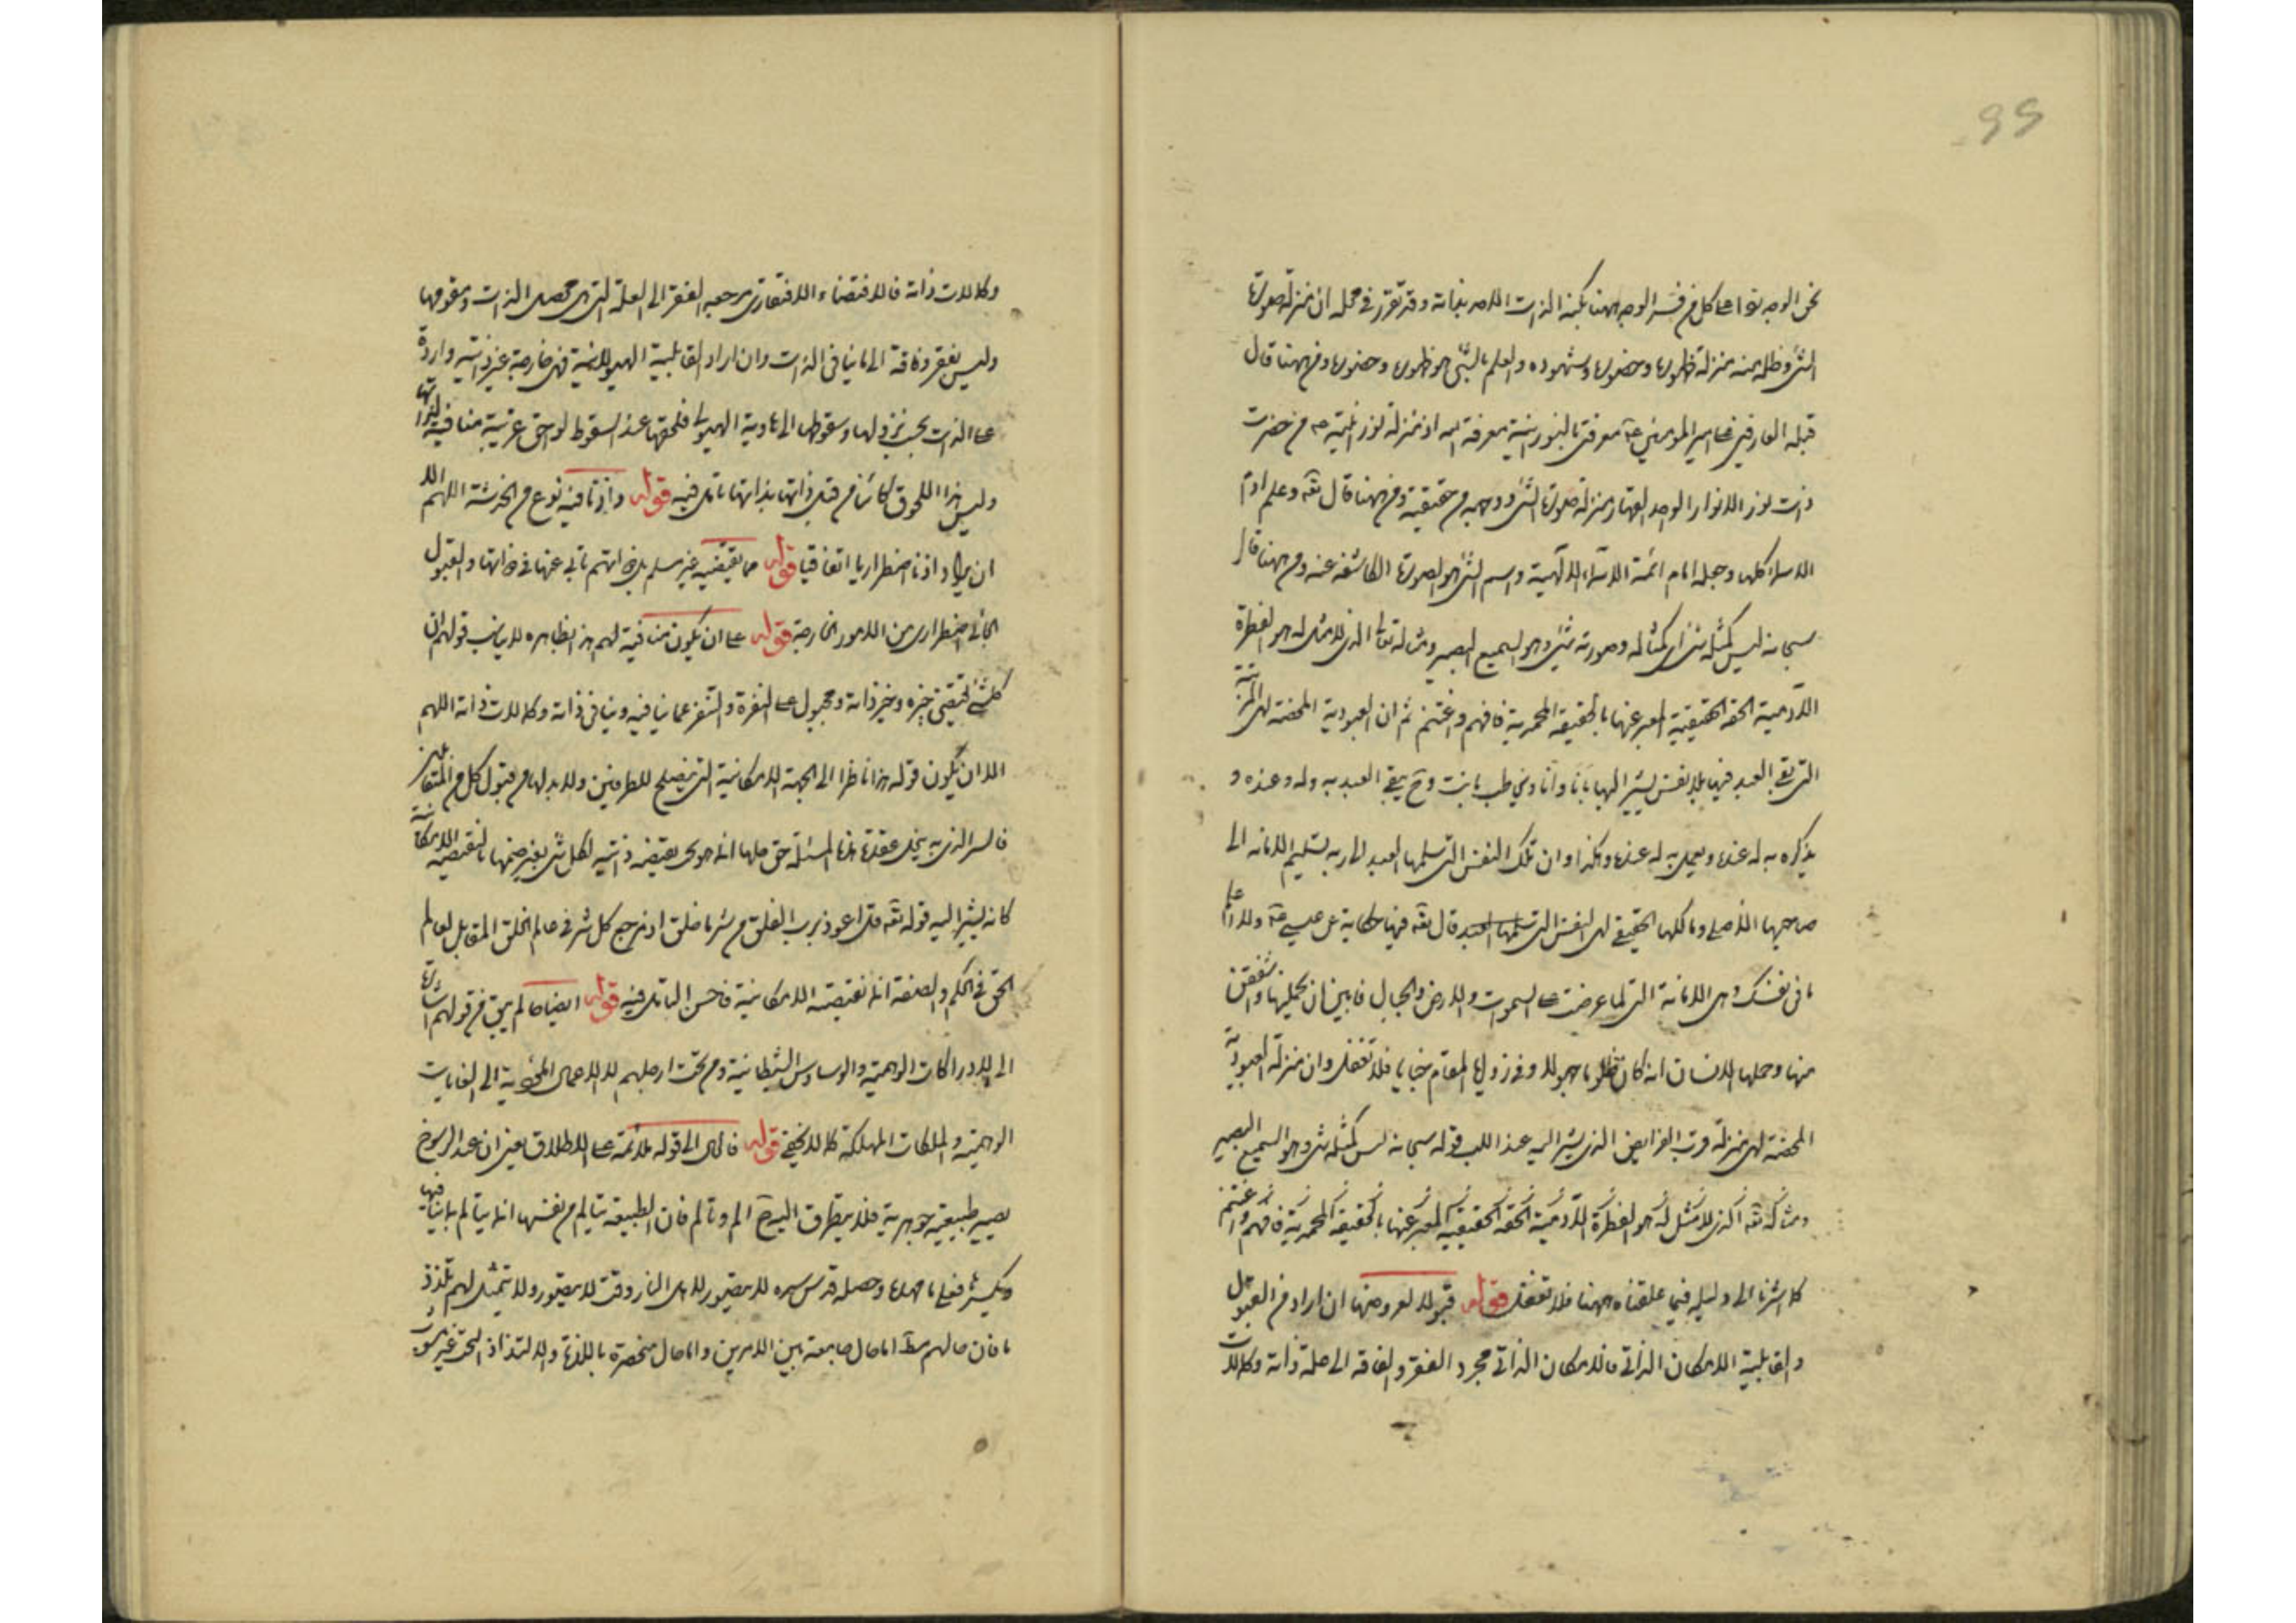 نحن الوجه بنوا على كل من فسر الوجه ههنا بكنه الذات اللامر بنهاية وقد تقرر في محله ان منزلة صورة
الشئ وظله منه منزلة ظهوره وحضوره وشهوده والعلم بالشئ هو ظهوره وحضوره ومن ههنا قال
قبلة العارفين على امير المؤمنين ع معرفتى بالنورانية معرفة الله اذ منزلة نوره من حضرت
ذات نور الانوار الواحد القهار منزلة صورة الشئ ووجهه من حقيقته ومن ههنا قال تعه وعلم ادم
الاسماء كلها وجعله امام ائمة الاسماء الالهية واسم الشئ هو الصورة الكاشفة عنه ومن ههنا قال
سبحانه ليس كمثله شئ اى كمثاله وصورته شئ وهو السميع البصير ومثاله تعالى الذى لا مثل له هو الفطرة
الآدمية الحقه الحقيقية المعبر عنها بالحقيقة المحمدية فافهم واغتنم ثم ان العبودية المحضة لهى المرتبة
التى بقى العبد فيها بلا نفس يشير اليها بانا وانا ويخاطب بانت وح يبقى العبد به وله وعنده و
يذكره به له عنده ويعمل به له عنده وهكذا وان تلك النفس التى سلمها العبد الى ربه تسليم الامانه الى
صاحبها الأصلى ومالكها الحقيقى لهى النفس التى سلمها العبد قال تعه فيها حكاية عن عيسى ع ولا اعلم
ما فى نفسك وهى الامانة التى لما عرضت على السموات والارض والجبال فابين ان يحملنها واشفقن
منها وحملها الانسان انه كان ظلوما جهولا وفى زوايا المقام خبايا فلا تغفل وان منزلة العبودية
المحضة لهى منزلة قرب الفرائض الذى يشير اليه عند اللب قوله سبحانه ليس كمثله شئ وهو السميع البصير
ومثاله تعه الذى لا مثل له هو الفطرة الآدمية الحقه الحقيقيه المعبر عنها بالحقيقة المحمدية فافهم واغتنم
كما اشرنا الى دليله فيما علقناه ههنا فلا تغفل قوله قبولا لعروضها ان اراد من القبول
والقابلية الامكان الذاتى فالامكان الذاتى مجرد الفقر والفاقة الى صلة ذاته وكمالات
وكمالات ذاته فالاقتضاء الافتقارى مرجعه الفقر الى العلة التى هى محصل الذات ومقومها
وليس بفقر وفاقة الى ما ينافى الذات وان اراد القابلية الهيولانية فهى خارجة غير ذاتية واردة
على الذات بحسب نزولها وسقوطها الى هاوية الهيولى فلحقها عند السقوط لواحق غريبة منافية لذاتها
وليس هذا اللحوق كائنا من قبل ذاتها بذاتها تامل فيه قوله واذنا فيه نوع من الخدشة اللهم الا
ان يراد اذنا اضطراريا اتفاقيا قوله ما يقتضيه غير مسلم بل ذواتهم تابى عنها فى ذواتها والقبول
الجائى اضطرارى من الامور الخارجة قوله على ان يكون منافية لهم هذا بظاهره لا يناسب قولهم ان
كل شئ يقتضى خيره وخير ذاته ومجبول على النفرة والتنفر عما ينافيه وينافى ذاته وكمالات ذاته اللهم
الا ان يكون قوله هذا ناظرا الى الجهة الامكانية التى تصلح للطرفين ولا بد لها من قبول كل من المتقابلين
فالسر الذى به ينحل عقدة هذه المسئلة حق حلها انه هو كون نقيصة ذاتية لكل شئ يعبر عنها بالنقيصة الامكانية
كانه يشير اليه قوله تعه قل اعوذ برب الفلق من شر ما خلق اذ مرجع كل شر فى عالم الخلق المقابل لعالم
الحق فى الحكم والصفة انه نقيصته الامكانية فاحسن التامل فيه قوله ايضا ما لم يبق فى قولهم اشارة
الى الادراكات الوهمية والوساوس الشيطانية ومن تحت ارجلهم للاعمال المؤدية الى الغايات
الوهمية والملكات المهلكة كما لا يخفى قوله فالى الى قوله ملائمة على الاطلاق يعنى ان عند الرسوخ
يصير طبيعية جوهرية فلا يتطرق اليه ح الم وتالم فان الطبيعة يتالم من نفسها انه يتالم بما ينافيها
ويكسر فعلى ما مهده وحصله قدس سره لا يتصور لاهل النار وقت لا يتصور ولا يتمثل لهم تلذذ
ما فان حالهم مط اما حال جامعة بين الامرين واما حال منحصرة باللذة والالتذاذ البحت غير مشوب